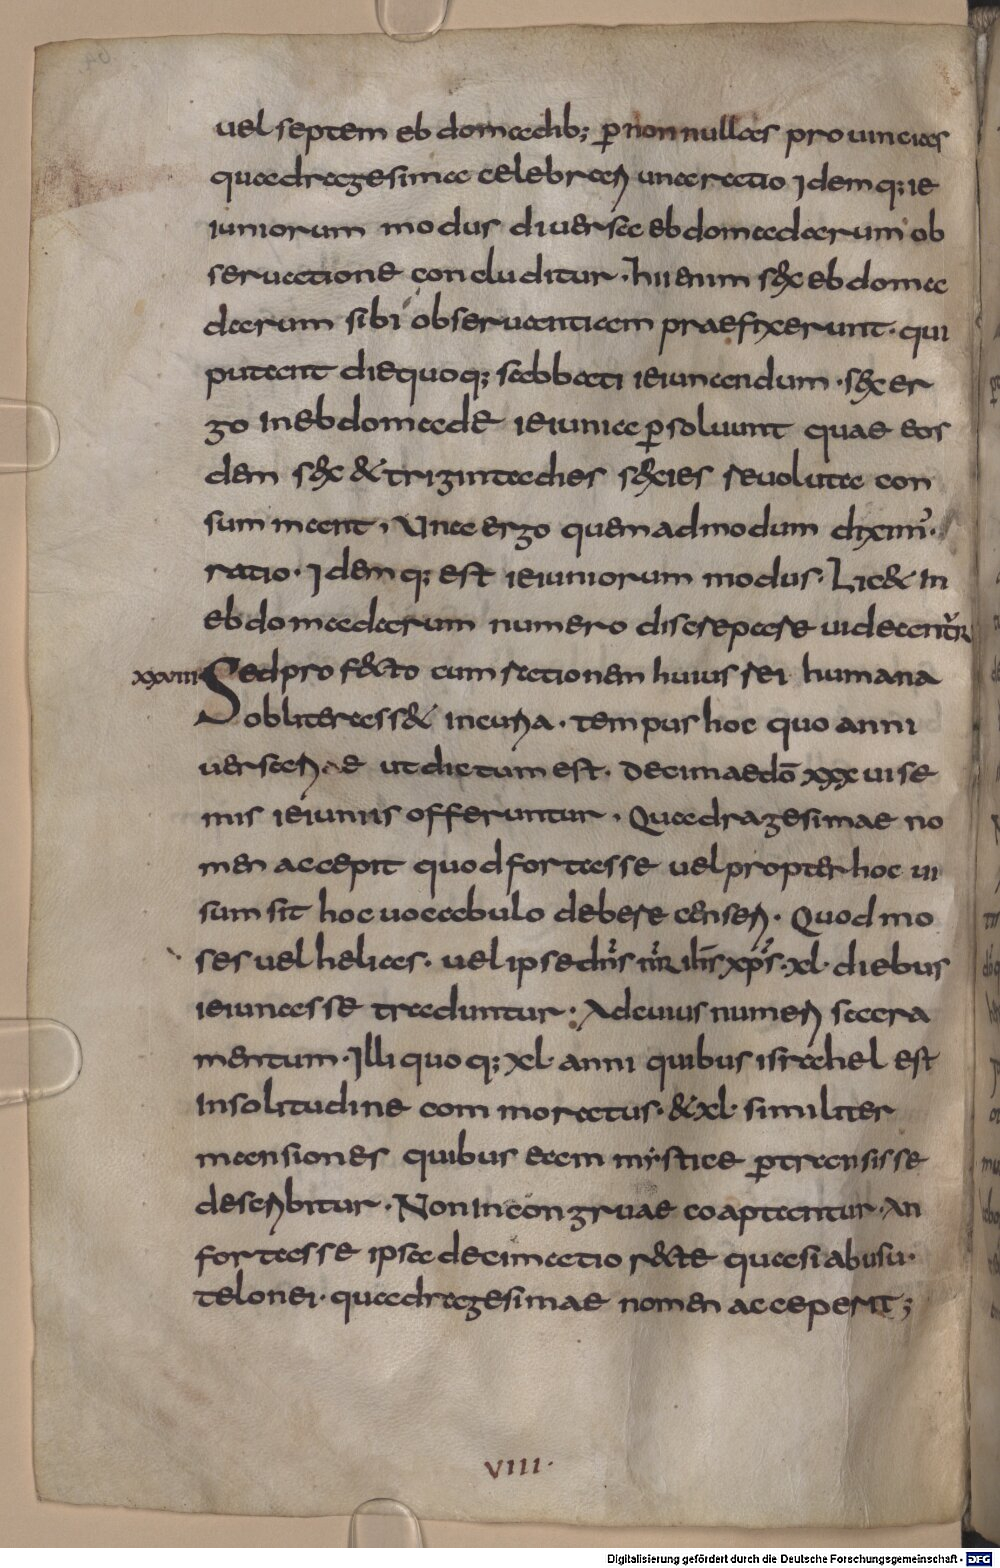 uel septem ebdomadib; p nonnullas prouincias
quadragesima celebratur una ratio Idemq; ie
iuniorum modus diuersa ebdomadarum ob
seruatione concluditur. hii enim sex ebdoma
darum sibi obseruantiam praefixerunt. qui
putant die quoq; sabbati ieiunandum. sex er
go In ebdomade ieiunia psoluunt quae eos
dem sex & triginta dies sexies reuoluta con
summant. Una ergo quemadmodum diximus.
ratio. Idemq; est ieiuniorum modus. Lic& In
ebdomadarum numero discrepare uideantur
xxviiii Sed pro fecto cum rationem huius rei humana
obliterass& incuria. tempus hoc quo anni
uersariae ut dictum est. decimae dō xxx ui se
mis ieiuniis offeruntur. Quadragesimae no
men accepit quod fortasse uel propter hoc ui
sum sit hoc uocabulo debere censeri. Quod mo
ses uel helias. uel ipse dn̄s nr̄ ih̄s xp̄s. xl. diebus
ieiunasse traduntur. Ad cuius numeri sacra
mentum. Illi quoq; xl. anni quibus israhel est
In solitudine commoratus. & xl. similiter
mansiones quibus eam mystice ptransisse
describitur. Non Incongruae coaptantur. An
fortasse ipsa decimatio recte quasi ab usu.
telonei. quadragesimae nomen acceperit;
VIII.
Digitalisierung gefördert durch die Deutsche Forschungsgemeinschaft - DFG